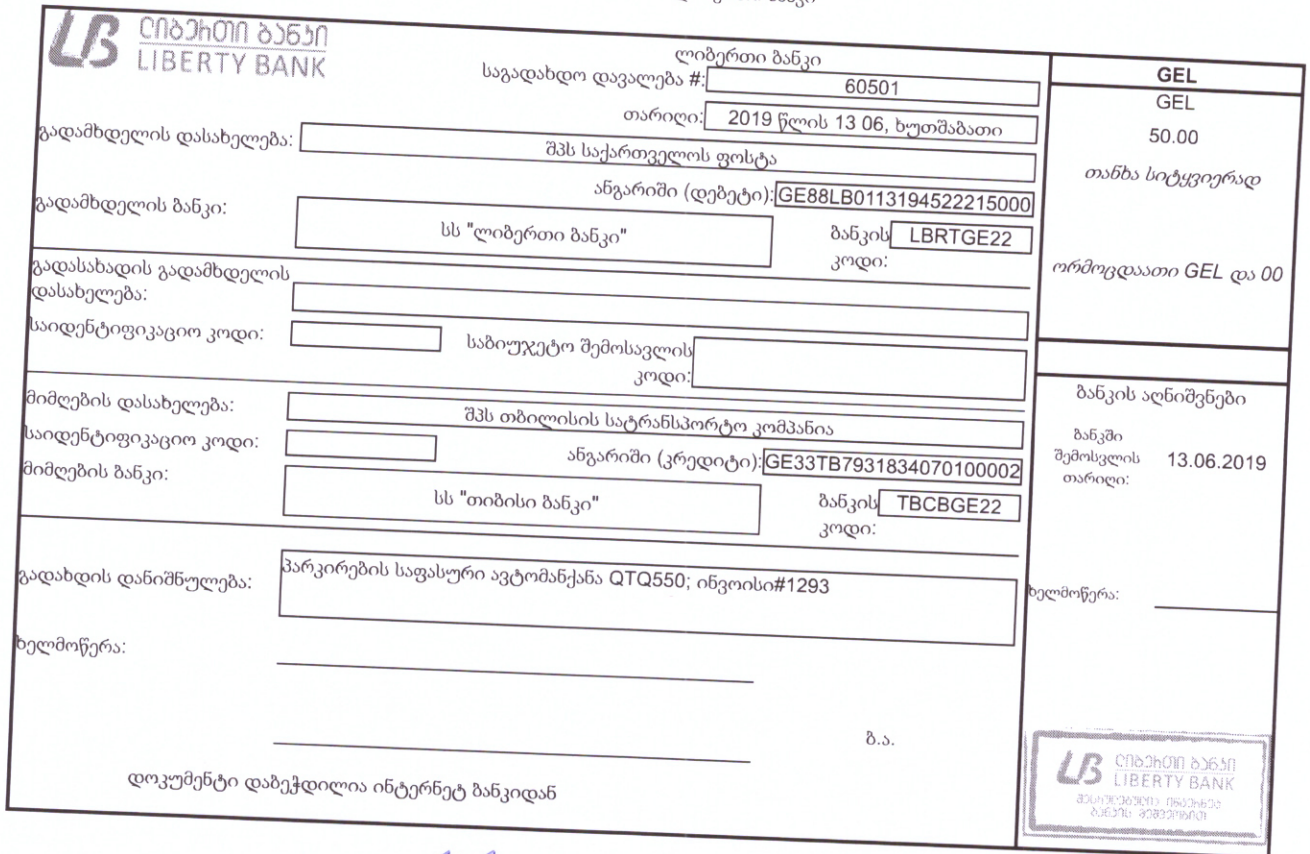 ლიბერთი ბანკი
LIBERTY BANK
ლიბერთი ბანკი
საგადახდო დავალება #: 60501
თარიღი: 2019 წლის 13 06, ხუთშაბათი
გადამხდელის დასახელება: შპს საქართველოს ფოსტა
ანგარიში (დებეტი): GE88LB0113194522215000
გადამხდელის ბანკი: სს "ლიბერთი ბანკი" ბანკის კოდი: LBRTGE22
გადასახადის გადამხდელის
დასახელება:
საიდენტიფიკაციო კოდი: საბიუჯეტო შემოსავლის
კოდი:
მიმღების დასახელება: შპს თბილისის სატრანსპორტო კომპანია
საიდენტიფიკაციო კოდი: ანგარიში (კრედიტი): GE33TB7931834070100002
მიმღების ბანკი: სს "თიბისი ბანკი" ბანკის კოდი: TBCBGE22
გადახდის დანიშნულება: პარკირების საფასური ავტომანქანა QTQ550; ინვოისი#1293
ხელმოწერა:
ბ.ა.
დოკუმენტი დაბეჭდილია ინტერნეტ ბანკიდან
GEL
GEL
50.00
თანხა სიტყვიერად
ორმოცდაათი GEL და 00
ბანკის აღნიშვნები
ბანკში
შემოსვლის 13.06.2019
თარიღი:
ხელმოწერა:
ლიბერთი ბანკი
LIBERTY BANK
შესრულებულია ინტერნეტ
ბანკის მეშვეობით